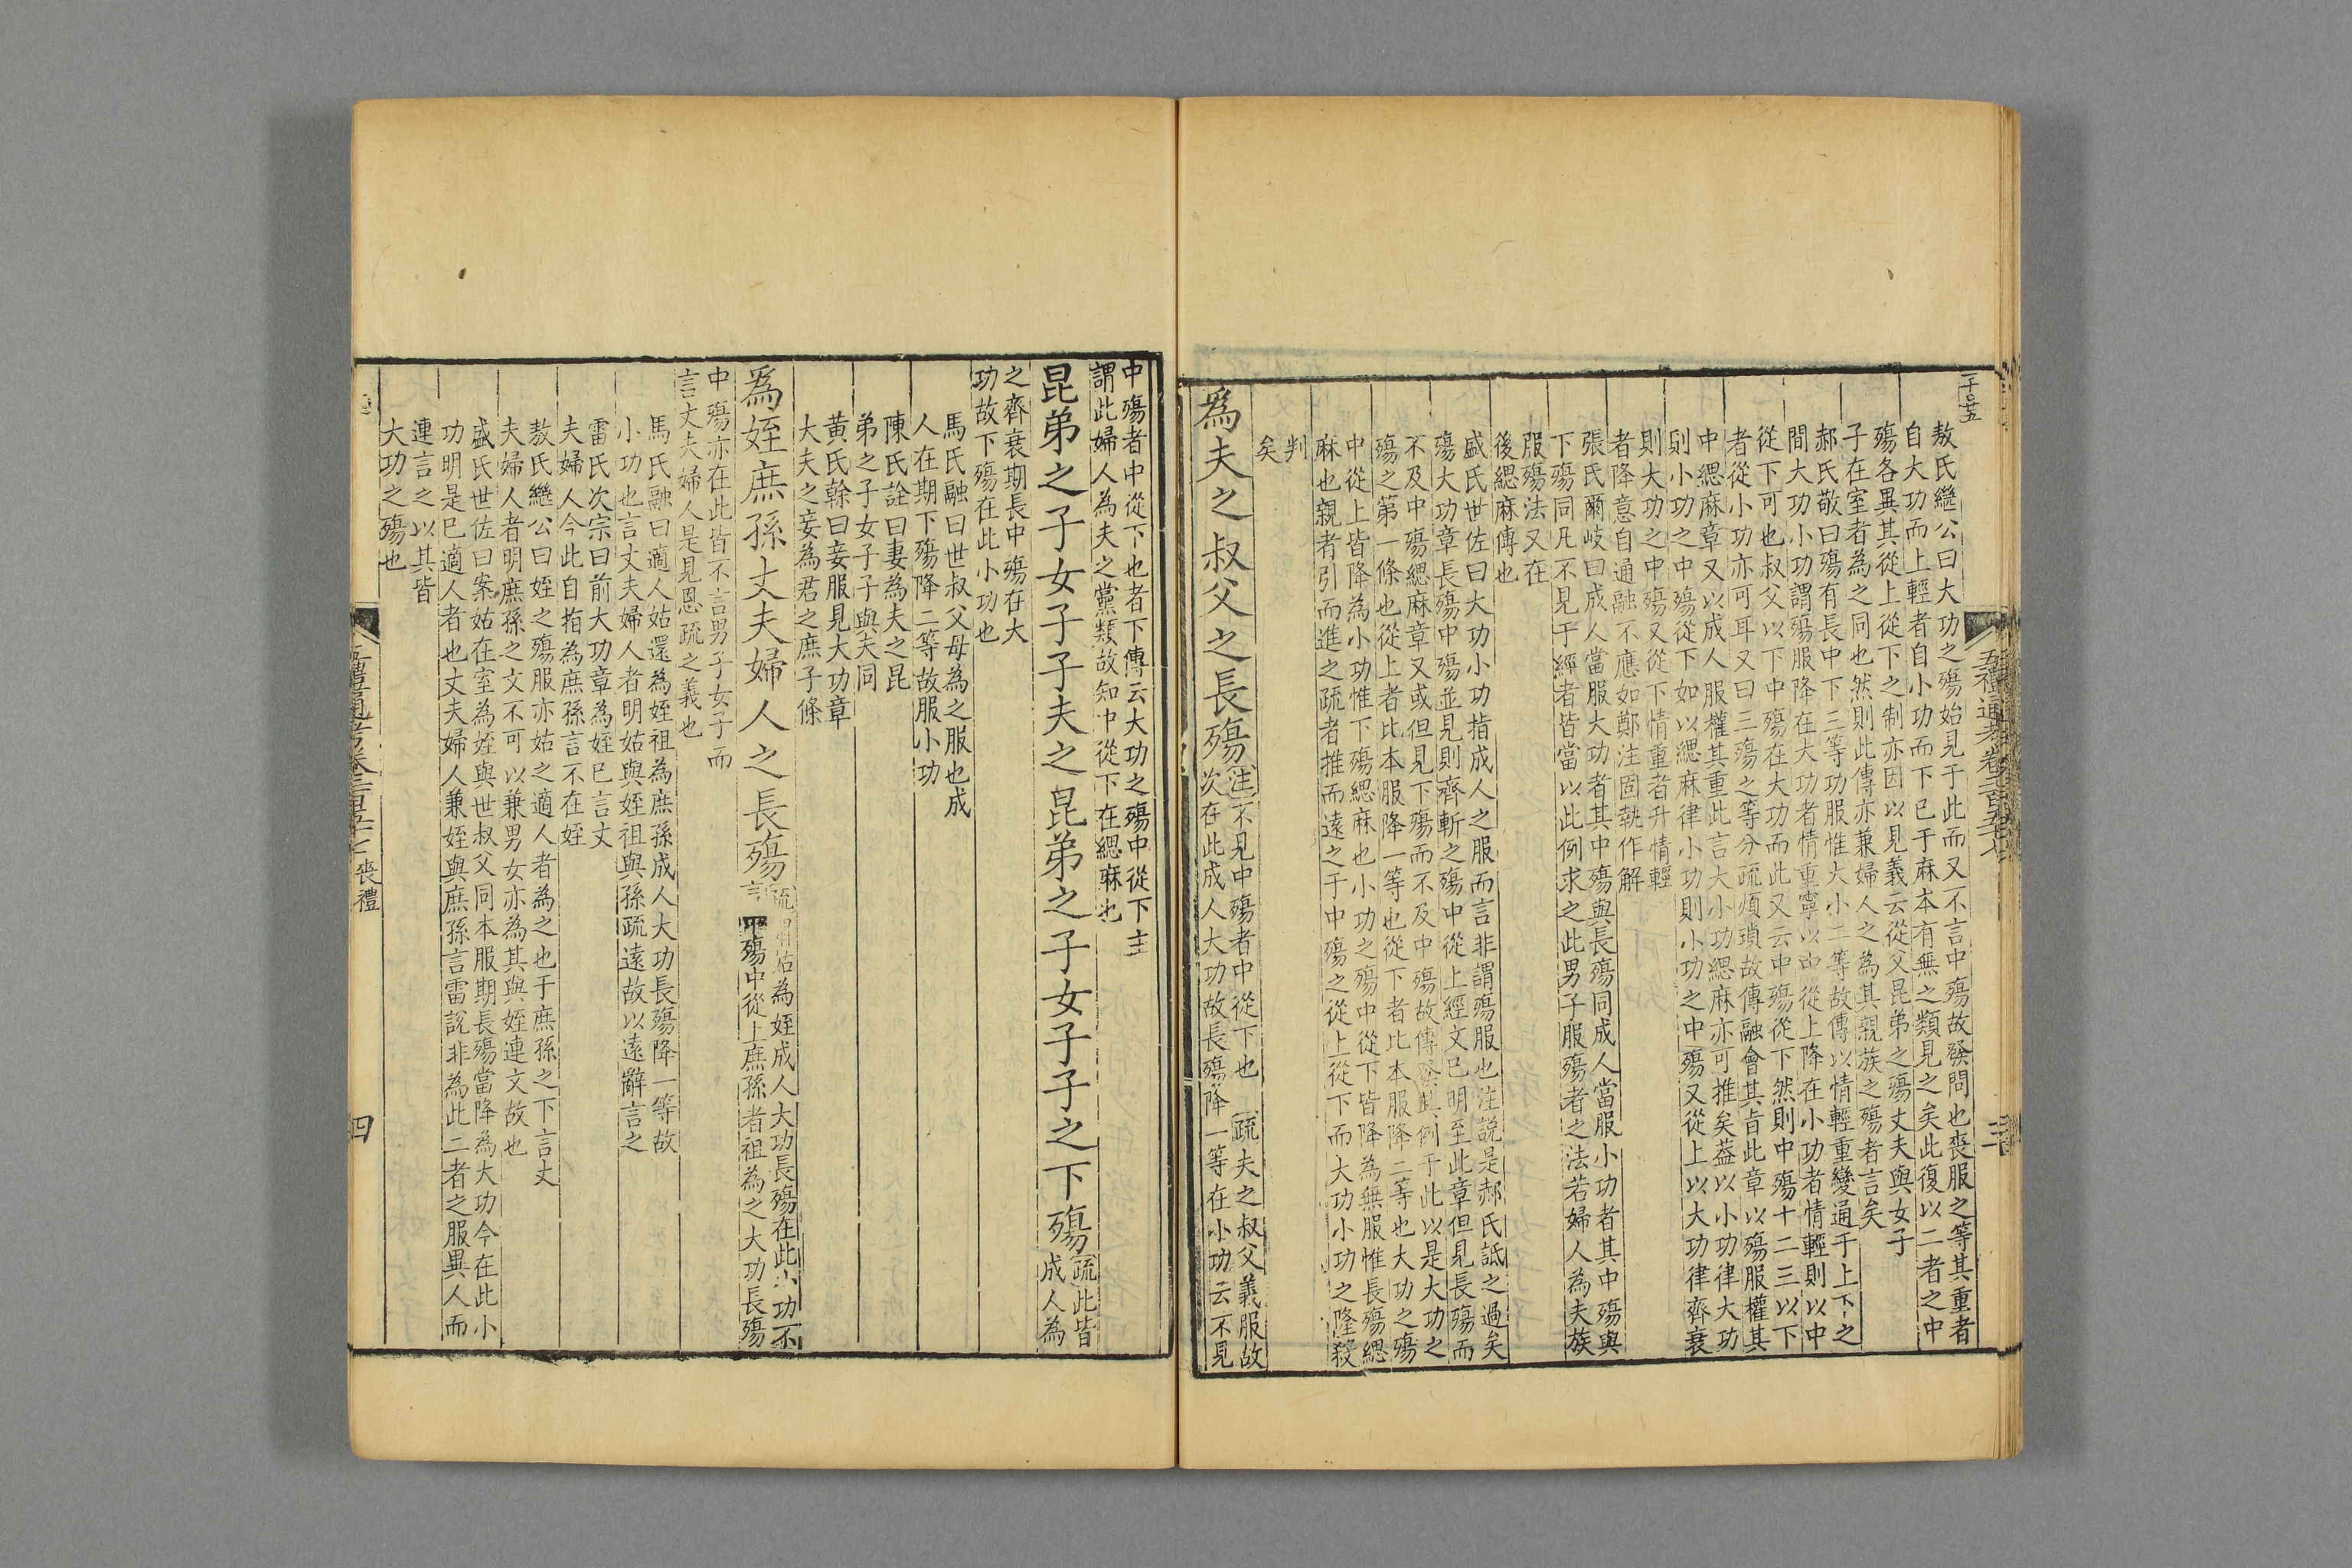 五禮通考卷二百五十七
三
敖氏繼公曰大功之殤始見于此而又不言中殤故發問也喪服之等其重者
自大功而上輕者自小功而下已于麻本有無之類見之矣此復以二者之中
殤各異其從上從下之制亦因以見義云從父昆弟之殤丈夫與女子
子在室者為之同也然則此傳亦兼婦人之為其親族之殤者言矣
郝氏敬曰殤有長中下三等功服惟大小二等故傳以情輕重變通于上下之
間大功小功謂殤服降在大功者情重寧以中從上降在小功者情輕則以中
從下可也叔父以下中殤在大功而此又云中殤從下然則中殤十二三以下
者從小功亦可耳又曰三殤之等分疏煩瑣故傳融會其旨此章以殤服權其
中緦麻章又以成人服權其重此言大小功緦麻亦可推矣葢以小功律大功
則小功之中殤從下如以緦麻律小功則小功之中殤又從上以大功律齊衰
則大功之中殤又從下情重者升情輕
者降意自通融不應如鄭注固執作解
張氏爾岐曰成人當服大功者其中殤與長殤同成人當服小功者其中殤與
下殤同凡不見于經者皆當以此例求之此男子服殤者之法若婦人為夫族
服殤法又在
後緦麻傳也
盛氏世佐曰大功小功指成人之服而言非謂殤服也注說是郝氏詆之過矣
殤大功章長殤中殤並見則齊斬之殤中從上經文已明至此章但見長殤而
不及中殤緦麻章又或但見下殤而不及中殤故傳發其例于此以是大功之
殤之第一條也從上者比本服降一等也從下者比本服降二等也大功之殤
中從上皆降為小功惟下殤緦麻也小功之殤中從下皆降為無服惟長殤緦
麻也親者引而進之疏者推而遠之于中殤之從上從下而大功小功之隆殺
判
矣
為夫之叔父之長殤
注不見中殤者中從下也 疏夫之叔父義服故
次在此成人大功故長殤降一等在小功云不見
中殤者中從下也者下傳云大功之殤中從下主
謂此婦人為夫之黨類故知中從下在緦麻也
昆弟之子女子子夫之昆弟之子女子子之下殤
疏此皆
成人為
之齊衰期長中殤在大
功故下殤在此小功也
馬氏融曰世叔父母為之服也成
人在期下殤降二等故服小功
陳氏詮曰妻為夫之昆
弟之子女子子與夫同
黃氏榦曰妾服見大功章
大夫之妾為君之庶子條
為姪庶孫丈夫婦人之長殤
姑為姪成人大功長殤在此小功不
言中殤中從上庶孫者祖為之大功長殤
中殤亦在此皆不言男子女子而
言丈夫婦人是見恩疏之義也
馬氏融曰適人姑還為姪祖為庶孫成人大功長殤降一等故
小功也言丈夫婦人者明姑與姪祖與孫疏遠故以遠辭言之
雷氏次宗曰前大功章為姪已言丈
夫婦人今此自指為庶孫言不在姪
敖氏繼公曰姪之殤服亦姑之適人者為之也于庶孫之下言丈
夫婦人者明庶孫之文不可以兼男女亦為其與姪連文故也
盛氏世佐曰案姑在室為姪與世叔父同本服期長殤當降為大功今在此小
功明是已適人者也丈夫婦人兼姪與庶孫言雷說非為此二者之服異人而
連言之以其皆
大功之殤也
五禮通考卷二百五十七 喪禮
四